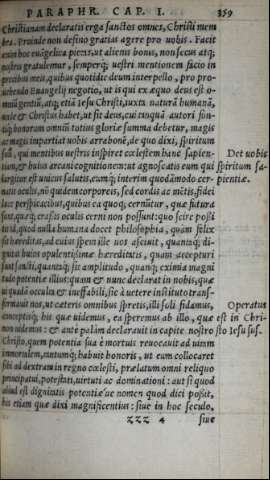 PARAPHR. CAP. I. 359
Christianam declaratis erga sanctos omnes, Christi mem
bra. Proinde non desino gratias agere pro vobis. Facit
enim hoc euãgelica pietas, ut alienis bonis, non secus atq;
nostris gratulemur, semperq; uestri mentionem facio in
precibus meis, quibus quotidie deum interpello, pro pro-
uehendo Euangelij negotio, ut is qui ex æquo deus est o-
mniũ gentiũ, atq; etiã Iesu Christi, iuxta naturã humanã,
ante & Christus habet, ut sit deus, cui tanquã autori fon-
tiq; bonorum omniũ totius gloriæ summa debetur, magis
ac magis impartiat uobis arrabonẽ, de quo dixi, spiritum
suũ, qui mentibus uestris inspiret cœlestem hanc sapien-
tiam, & huius arcani cognitionem: ut agnoscatis eum qui
largitur est unicus salutis, eumq; interim quodãmodo cer-
natis oculis, nõ quidem corporeis, sed cordis ac mẽtis, fidei
luce perspicacibus, quibus ea quoq; cernũtur, quæ futura
sunt, quæq; crassis oculis cerni non possunt: quo scire possi
tis id, quod nulla humana docet philosophia, quàm felix
sit hæreditas, ad cuius spem ille uos asciuit, quantaq; di-
gnitas huius opulentissimæ hæreditatis, quam accepturi
sunt sancti, quantaq; sit amplitudo, quamq; eximia magni
tudo potentiæ illius: quam & nunc declarat in nobis, quæ
ui quadã occulta & ineffabili, sic à uetere instituto trans-
formauit nos, ut cæteris omnibus spretis, illi soli fidamus,
contemptisq; his quæ uidemus, ea speremus ab illo, quæ
non uidemus: & ante palàm declarauit in capite nostro
Christo, quem potentia sua è mortuis reuocauit ad uitam
immortalem, tantumq; habuit honoris, ut eum collocaret
sibi ad dextram in regno cœlesti, prælatum omni reliquo
principatui, potestati, uirtuti ac dominationi: aut si quod
aliud est dignitatis potentiæ'ue nomen quod dici possit,
his etiam quæ dixi magnificentius: siue in hoc seculo,
zzz 4 siue
Det uobis
spiritum sa-
pientiæ.
Operatus
est in Chri-
sto Iesu suf.